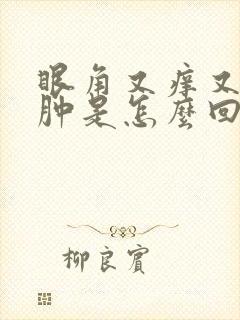 眼角又痒又
肿是怎麼回
柳良賓